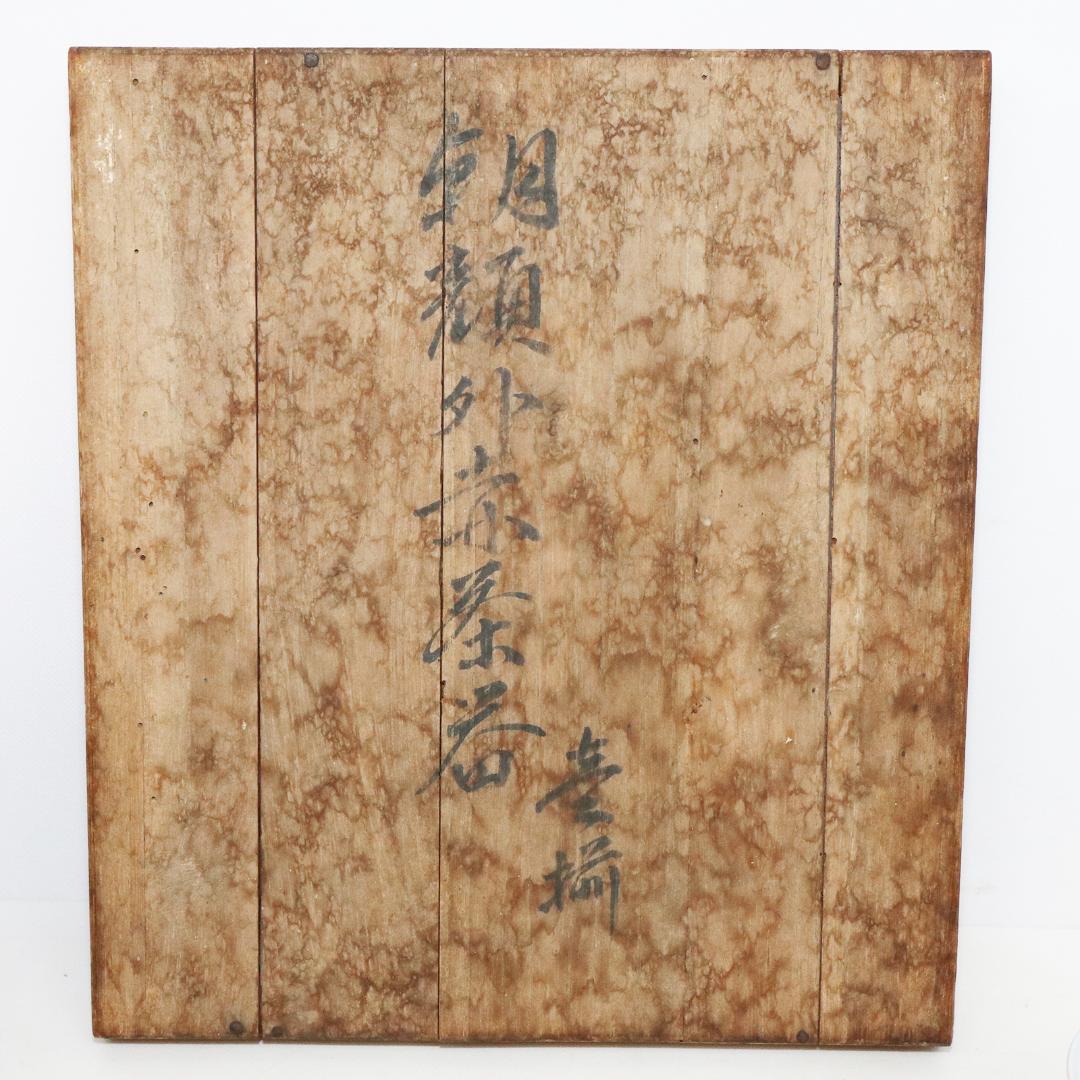 朝顔外赤茶器
壹揃